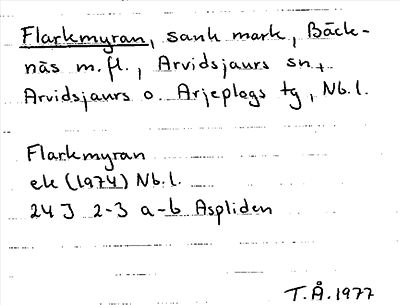 Flarkmyran, sank mark, Bäck-
näs m.fl., Arvidsjaurs sn +
Arvidsjaurs o Arjeplogs tg, Nb.l.
Flarkmyran
ek (1974) Nb.l.
24 J 2-3 a-b Aspliden
T.Å. 1977